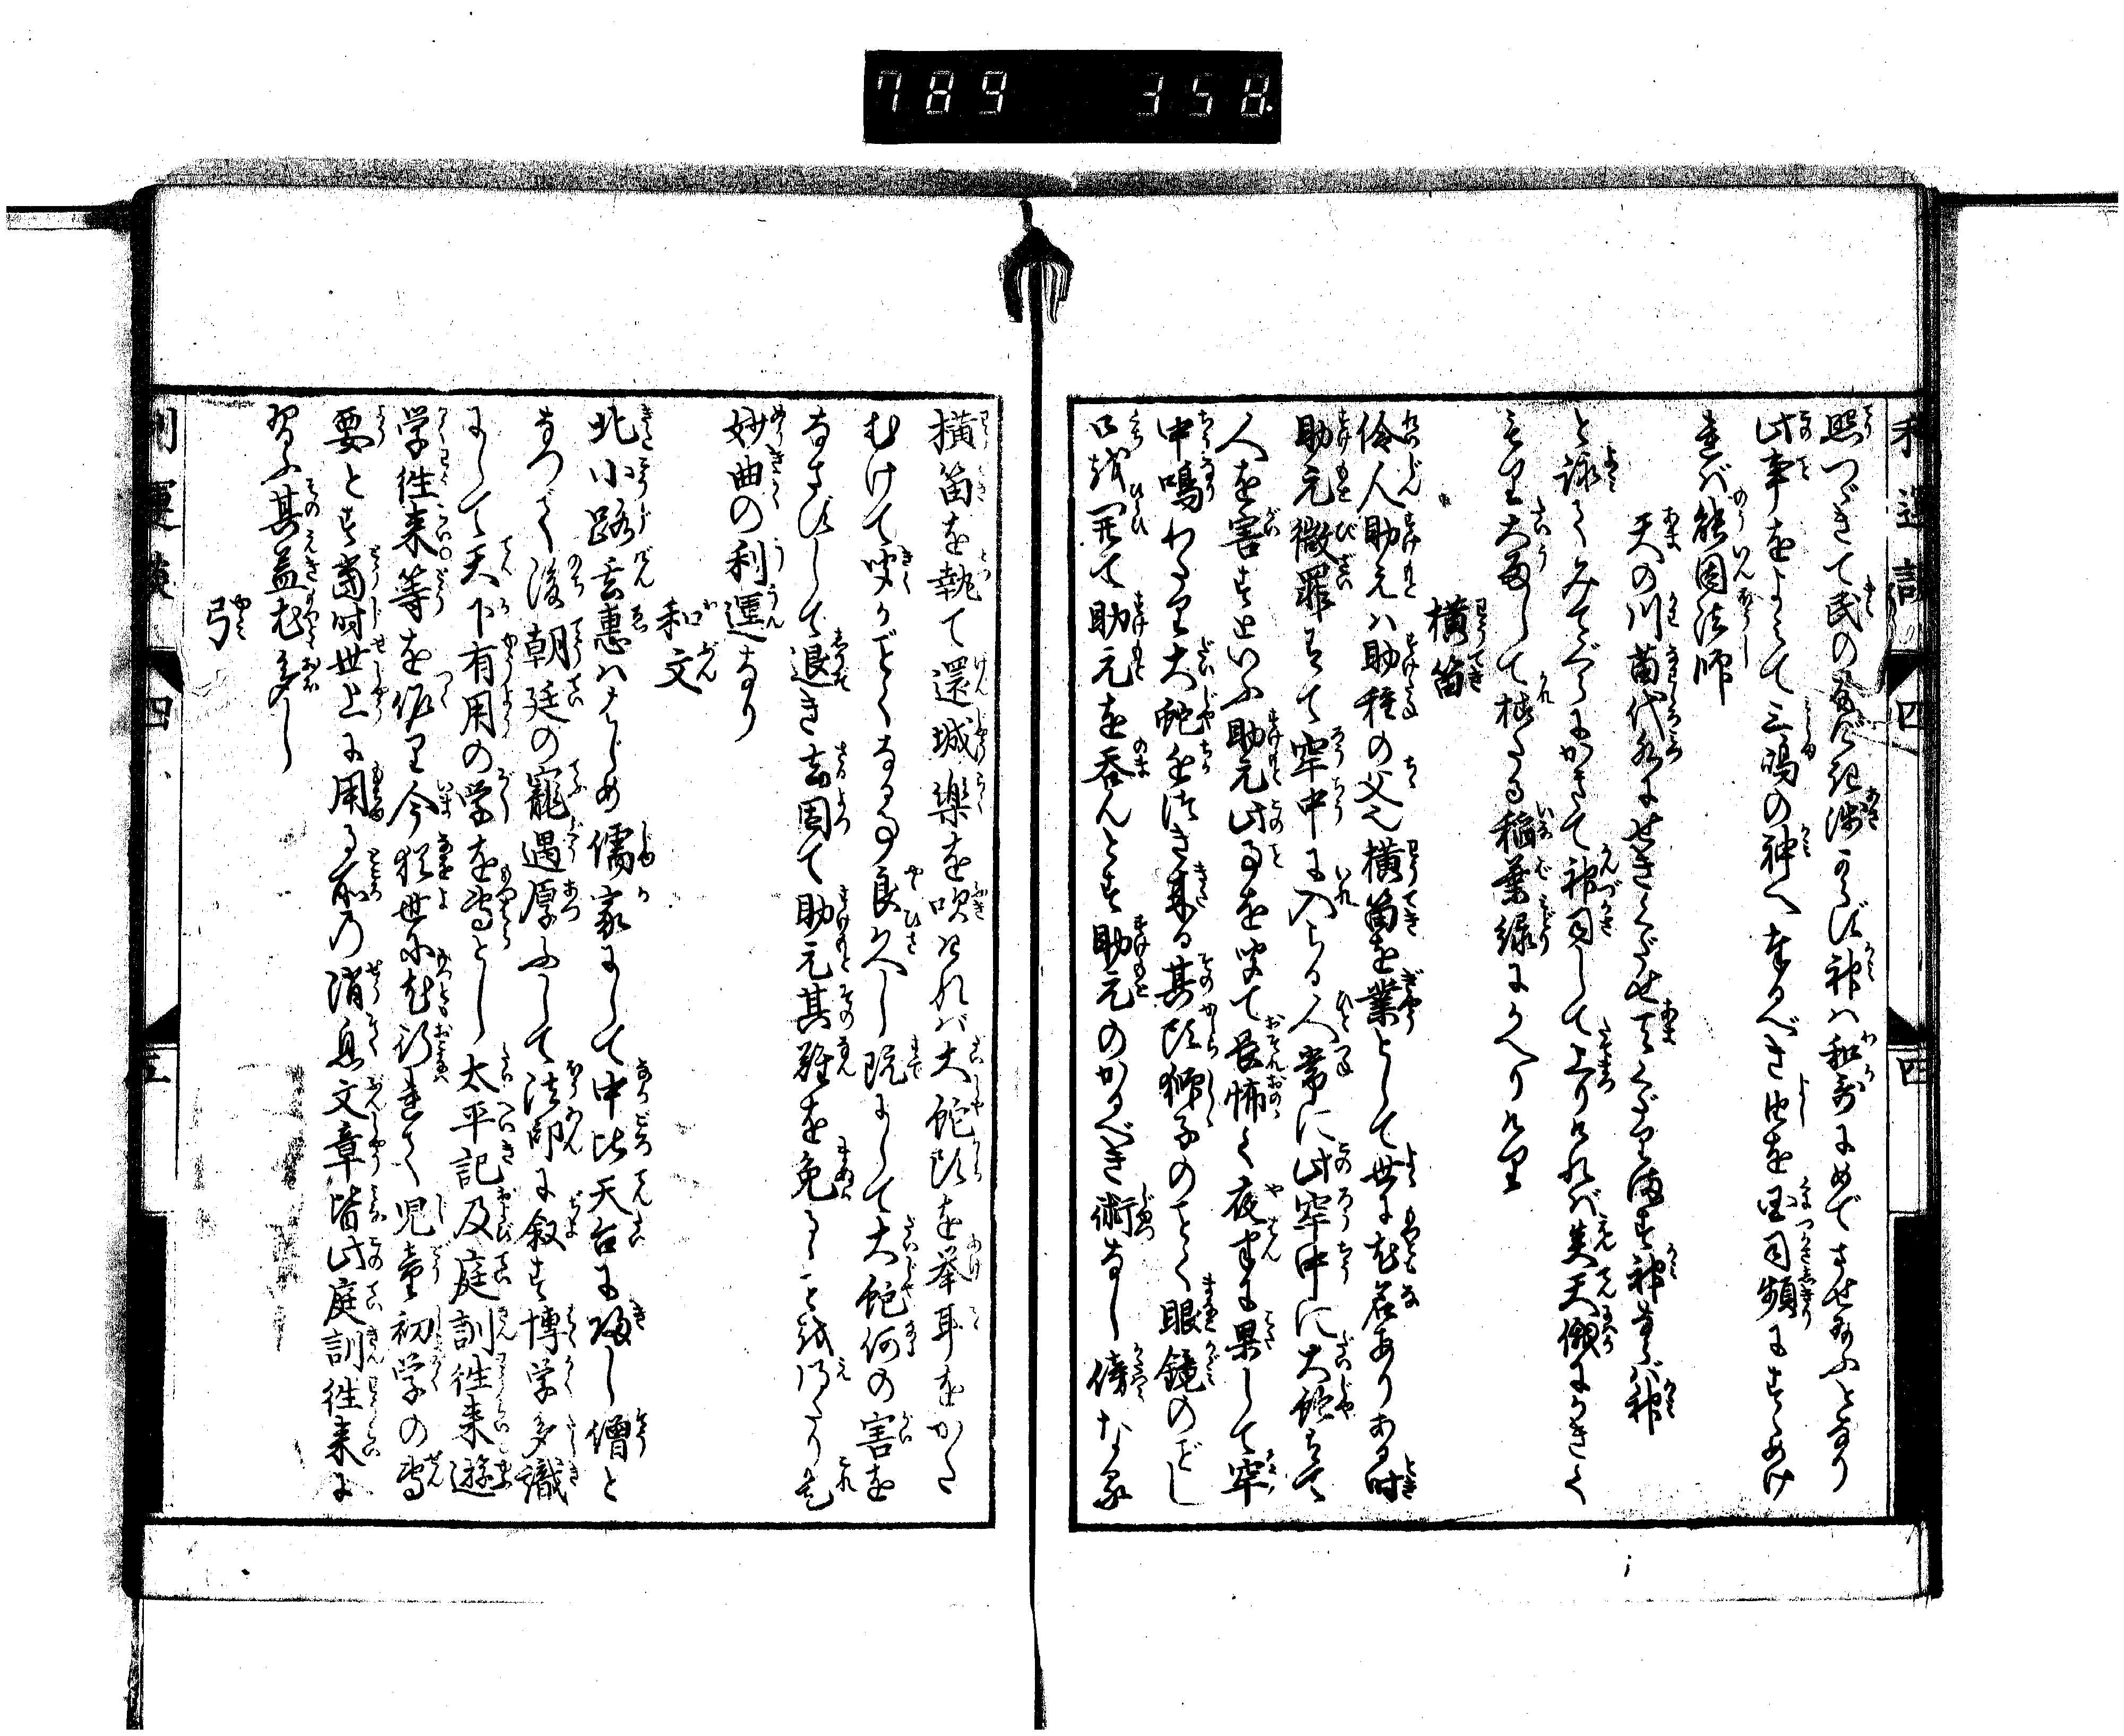 789 358
照つゞきて民の歎き浅からず神は和歌にめでさせ給ふとなり
此事をよみて三嶋の神へ奉るべき由を国司頻にすゝめけ
れば能因法師
天の川苗代水にせきくだせ天くだります神ならば神
と詠てみてぐらにかきて神司して上りければ炎天俄にかきくもり
大雨して枯たる稲葉緑にかへりけり
横笛
伶人助元ハ助種の父也横笛を業として世に尤名ありある時
助元微罪すて牢中に入らる人常に此牢中に大蛇すて
人を害すといふ助元此事を聞て甚怖く夜半に果して牢
中鳴わたり大蛇近づき来る其頭獅子のごとく眼鏡のごとし
口を開て助元を呑んとす助元のがるべき術なし傍なる
横笛を執て還城楽を吹ければ大蛇頭を挙耳をかた
むけて聞がごとくなる事良久し既にして大蛇何の害を
なさずして退き去因て助元其難を免るゝを得たり是
妙曲の利運なり
和文
北小路玄恵ハはじめ儒家にして中比天台に帰し僧と
なつて後朝廷の寵遇厚ふして法印に叙す博学多識
にして天下有用の学を専とし太平記及庭訓往来遊
学往来等を作り今猶世に尤行れて児童初学の専
要とす当時世上に用る所の消息文章皆此庭訓往来に
習ふ其益尤多し
弓